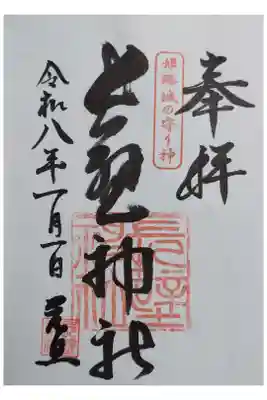 奉拝
姫路城の守り神
長壁神社
令和八年一月一日